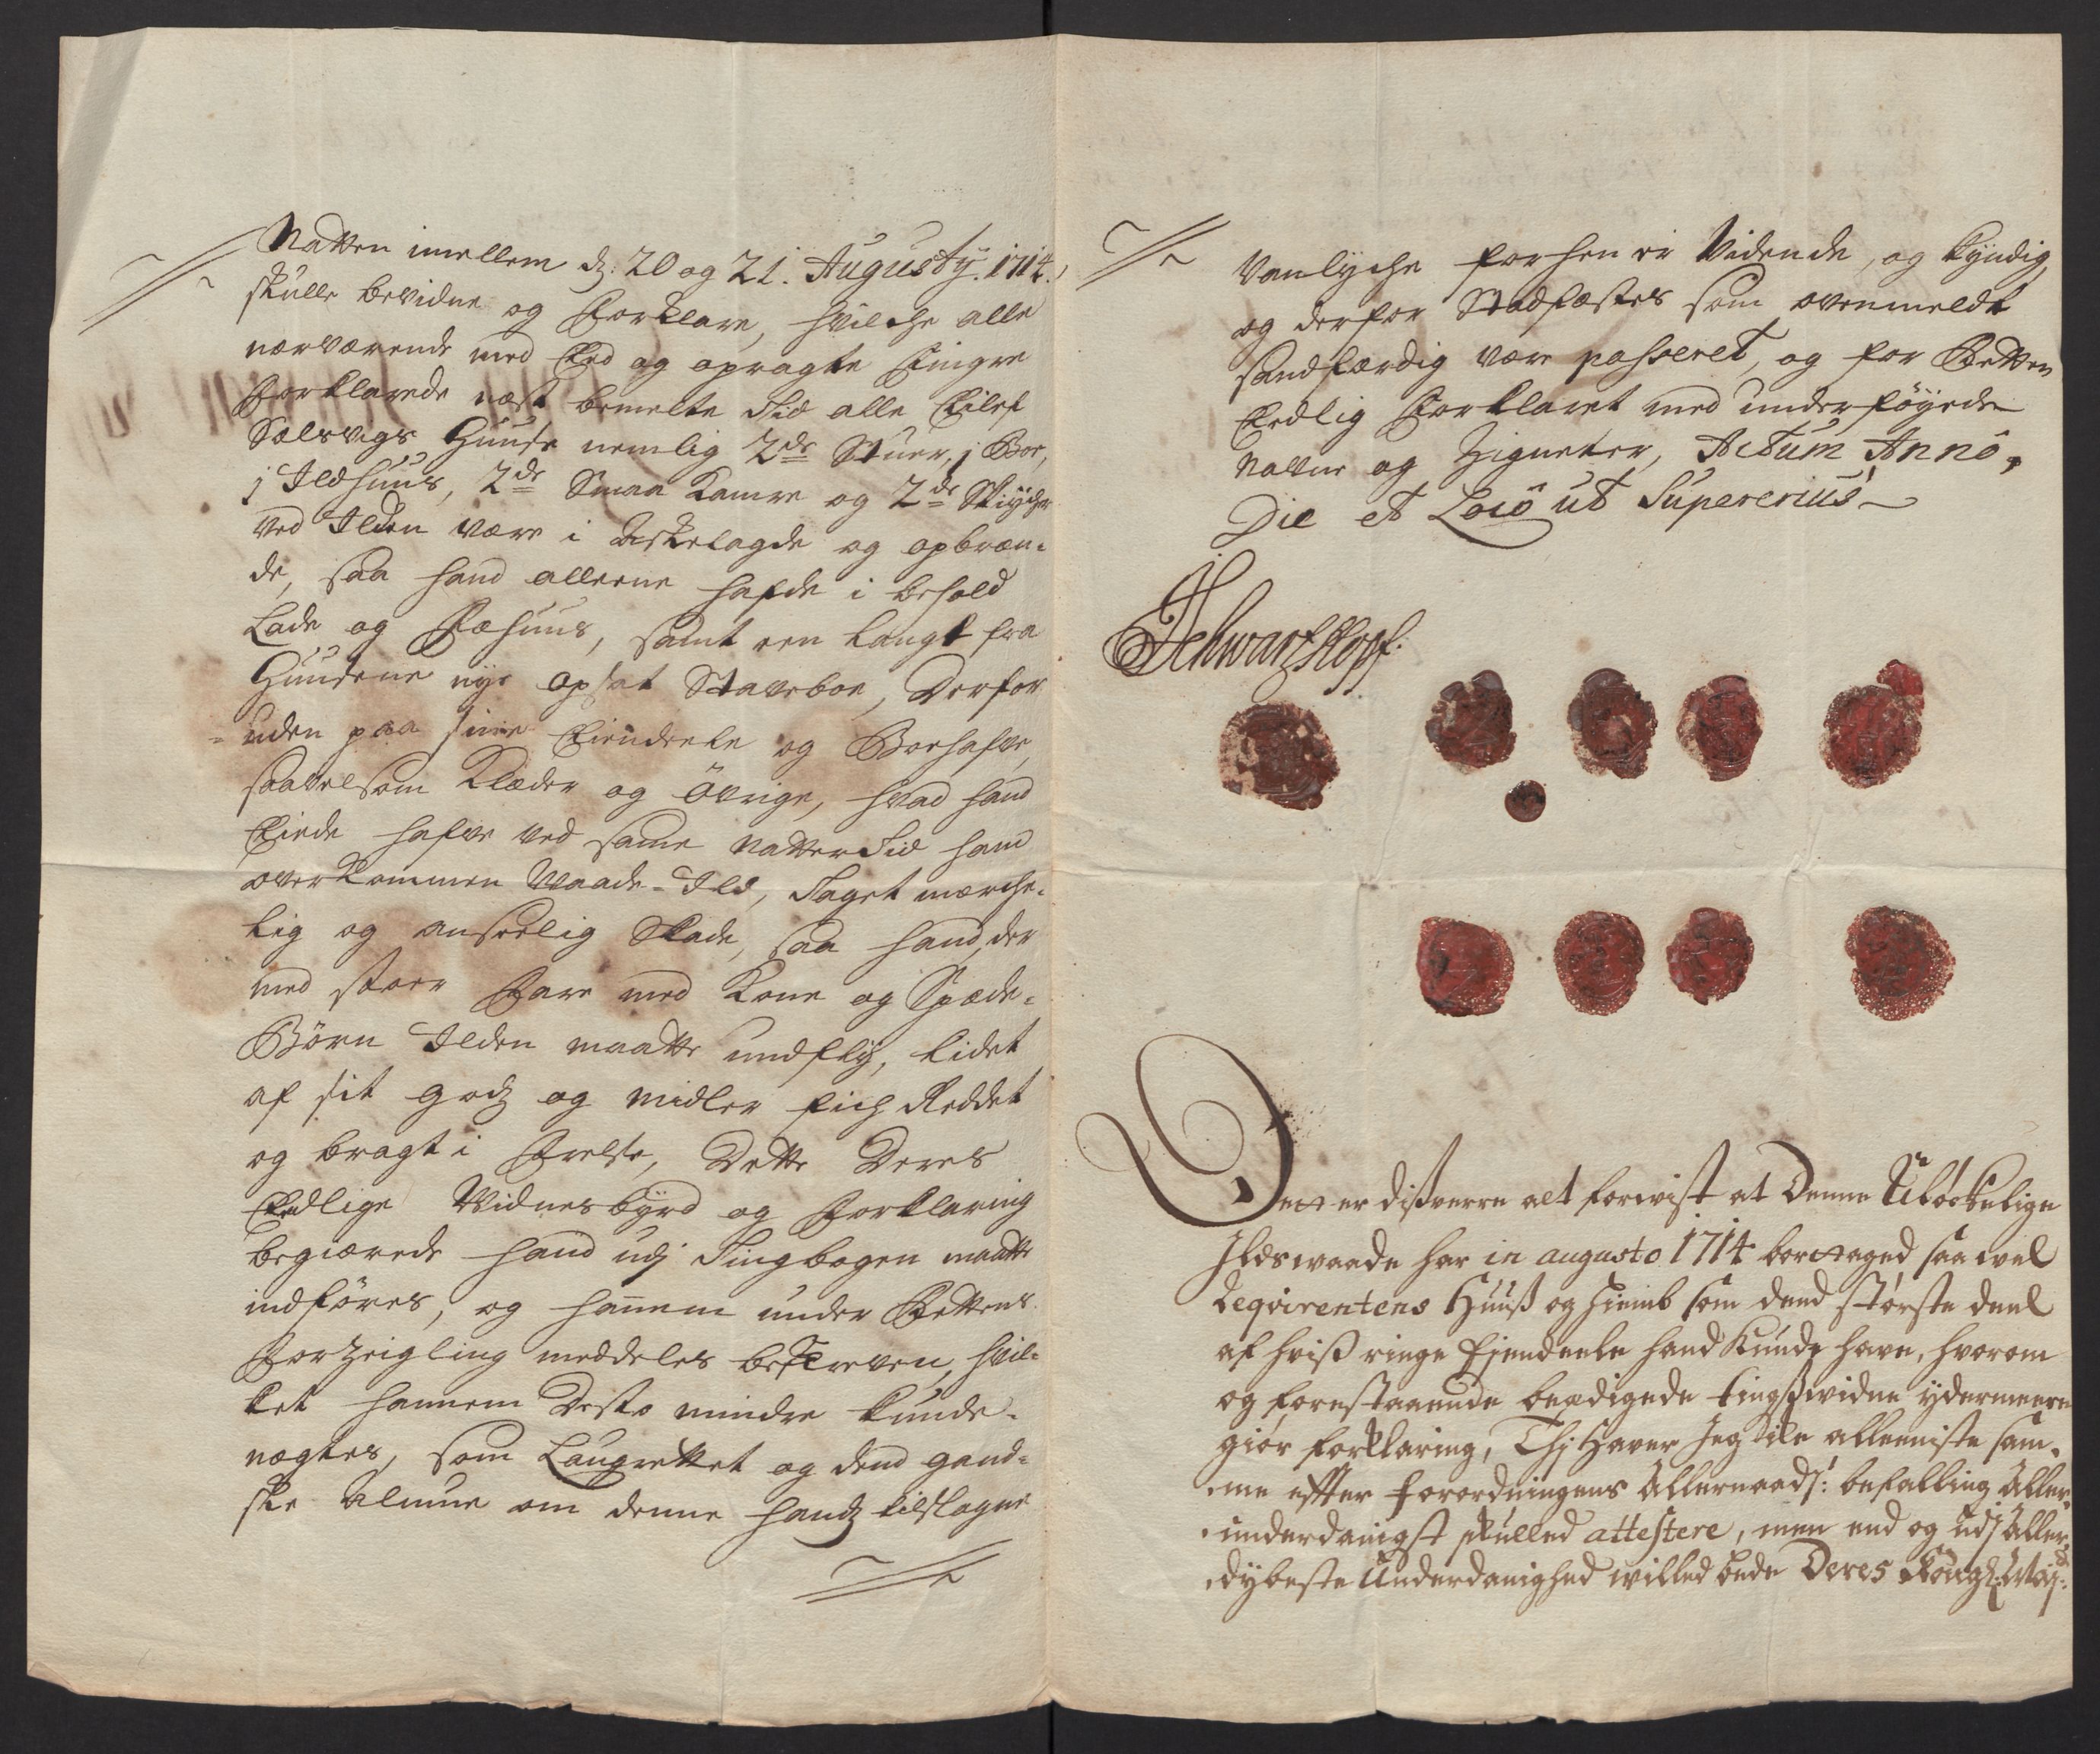 Natten imellem dͭ: 20 og 21. Augustÿ. 1714.
skulle bevidne og Forklare, hvilche alle
nærværende med Eed og opragte Fingre
Forklarede næst bemelte Tid alle Eilef
Sølsvigs Huuse nemlig 2de Stuer, j Boe,
j Ildhuus, 2de Smaa Kamre og 2de Skiycher
ved Ilden være i Askelagde og opbræn-
de, saa hand alleene hafde i behold
Lade og Fæhuus, samt een langt fra
Huusene nye opsat Staveboe, Derfor
uden paa sine Eiendeele og Boehafve,
saavelsom Klæder og Övrige, hvad hand
Eiede hafve ved samme natter Tid ham
overkommen Waade-Ild, Taget mærche-
lig og anseelig Skade, saa hand, der
med stoer Fare med Kone og Spæde-
Børn Ilden maatte undflÿ, lidet
af sit godz og midler fich Reddet
og bragt i Frelse, Dette Deres
Eedlige Vidnesbÿrd og Forklaring
begiærede hand udj Tingbogen maatte
indføres, og hannem under Rettens
Forzeigling meddeles beskreven, hvil-
ket hannem Desto mindre kunde
nægtes, som Laugrettet og dend gand-
ske Almue om denne hands tilslagne
Vanlÿche forhen er Vidende, og kÿndig,
og derfor Stadfæstes som ovenmeldt
sandfærdig være passeret, og for Retten
Eedlig Forklaret med underføÿede
Nafne og Zigneter, Actum Anno,
Die et Loco ut Supererius
Schwartzkopf.
Dett er dißverre alt forvist at Denne Uløckelige
Ildswaade har in augusto 1714 borttaged saa wel
Reqvirentens Huuß og Hiemb som dend største deel
af hviß ringe Ejendeele hand kunde have, hvorom
og forestaaende beædigede tingßwidne ÿdermeere
giør forklaring, Thj Haver Jeg icke alleeniste sam-
me effter Forordningens Allernaads: befalling Aller-
underdanigst skulled attestere, men end og udj Aller-
dÿbeste Underdanighed willed bede Deres Kongl: Maj: